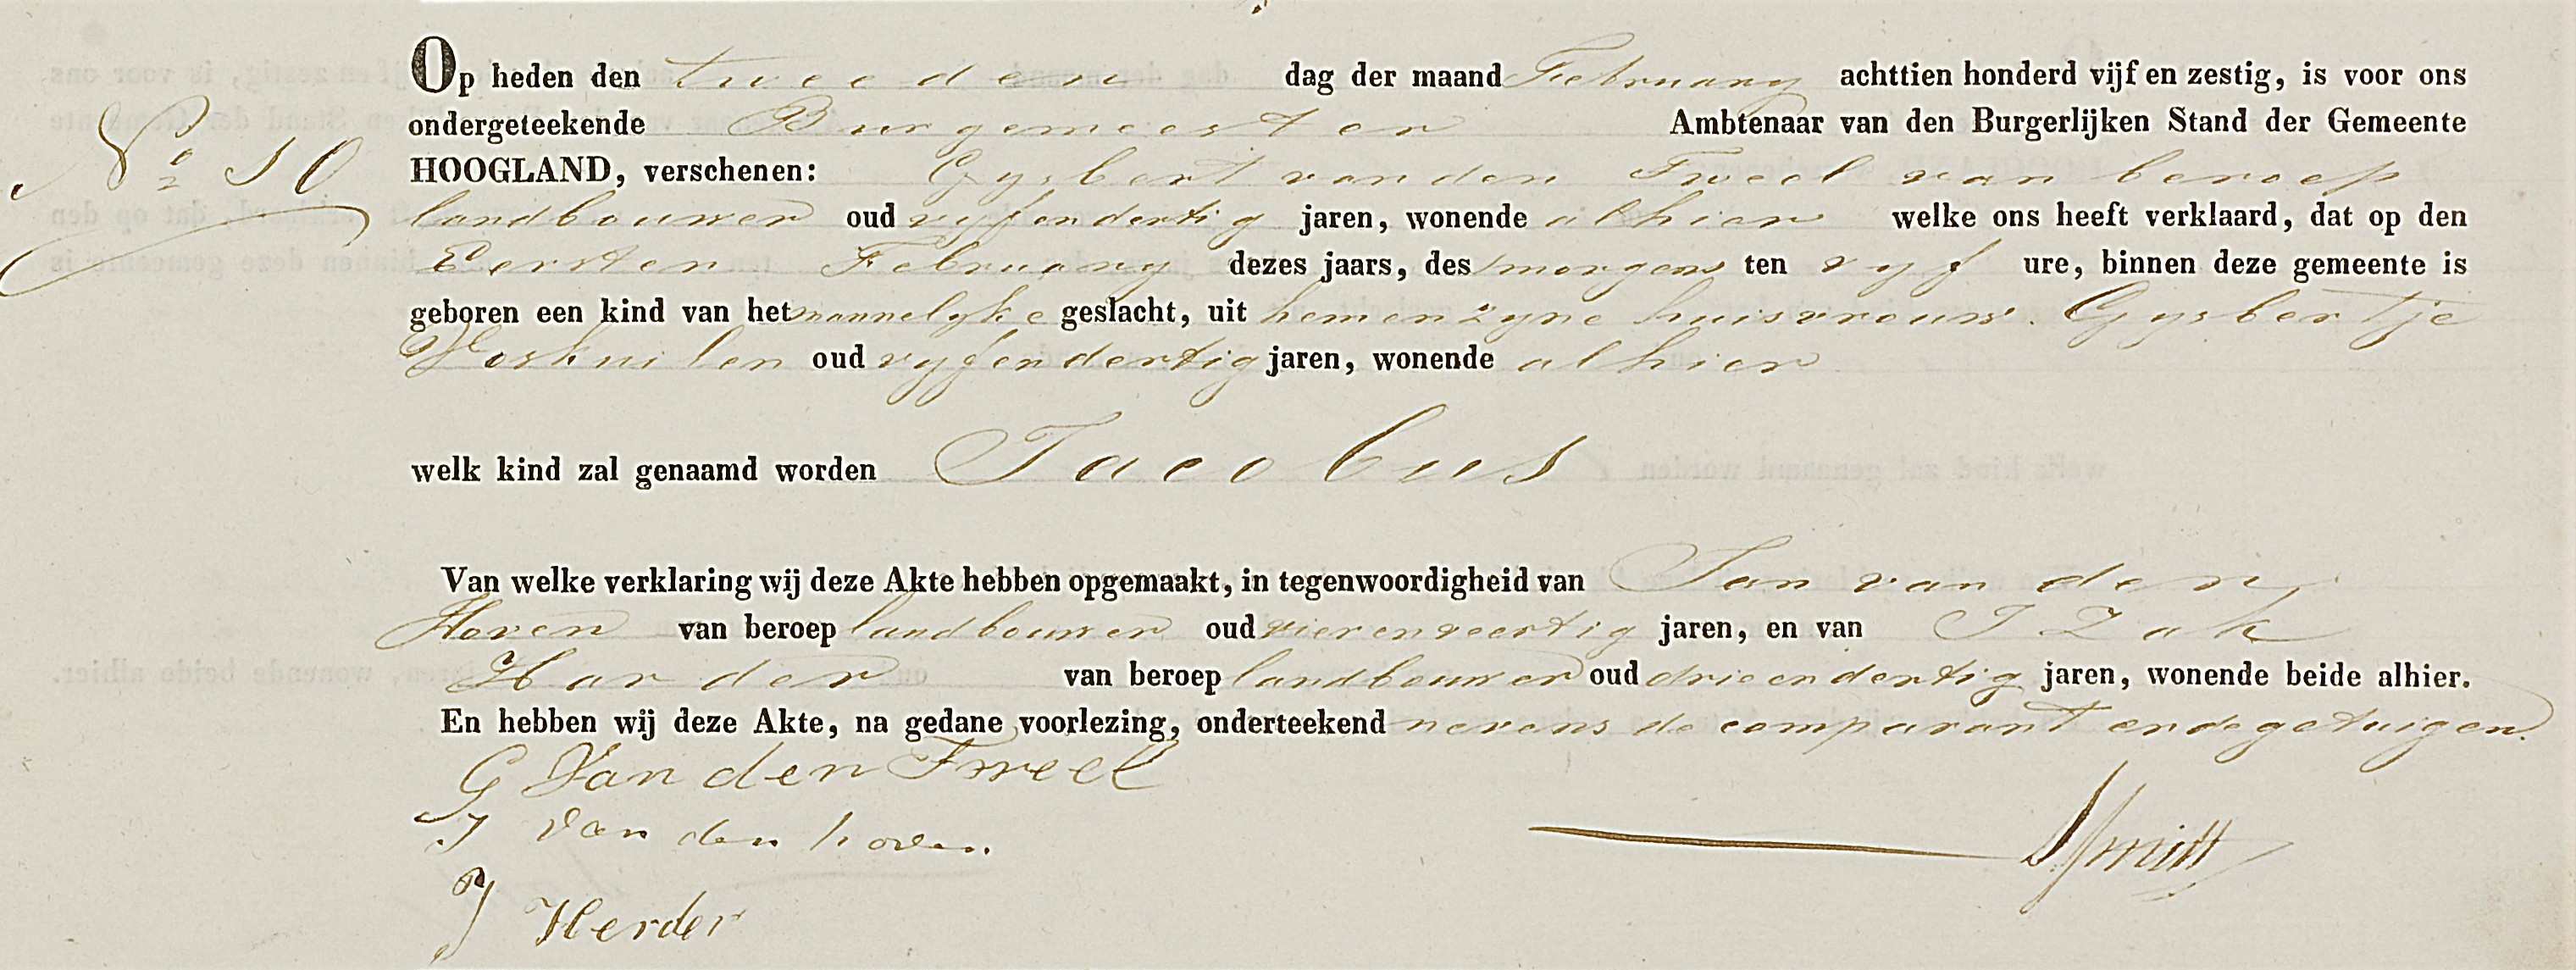 Op heden den tweeden dag der maand February achttien honderd vijf en zestig, is voor ons
ondergeteekende Burgemeester Ambtenaar van den Burgerlijken Stand der Gemeente
No 10 HOOGLAND, verschenen: Gysbert van den Tweel van beroep
landbouwer oud vyfendertig jaren, wonende alhier welke ons heeft verklaard, dat op den
Eersten February dezes jaars, des morgens ten vyf ure, binnen deze gemeente is
geboren een kind van het mannelyke geslacht, uit hem en zyne huisvrouw. Gysbertje
Voskuilen oud vyfendertig jaren, wonende alhier
welk kind zal genaamd worden Jacobus
Van welke verklaring wij deze Akte hebben opgemaakt, in tegenwoordigheid van Jan van den
Hoven van beroep landbouwer oud vierenveertig jaren, en van IZak
Harder van beroep landbouwer oud drieendertig jaren, wonende beide alhier.
En hebben wij deze Akte, na gedane voorlezing, onderteekend nevens de comparant en de getuigen.
G Van den Tweel
J van den hoven
J Herder
Smitt